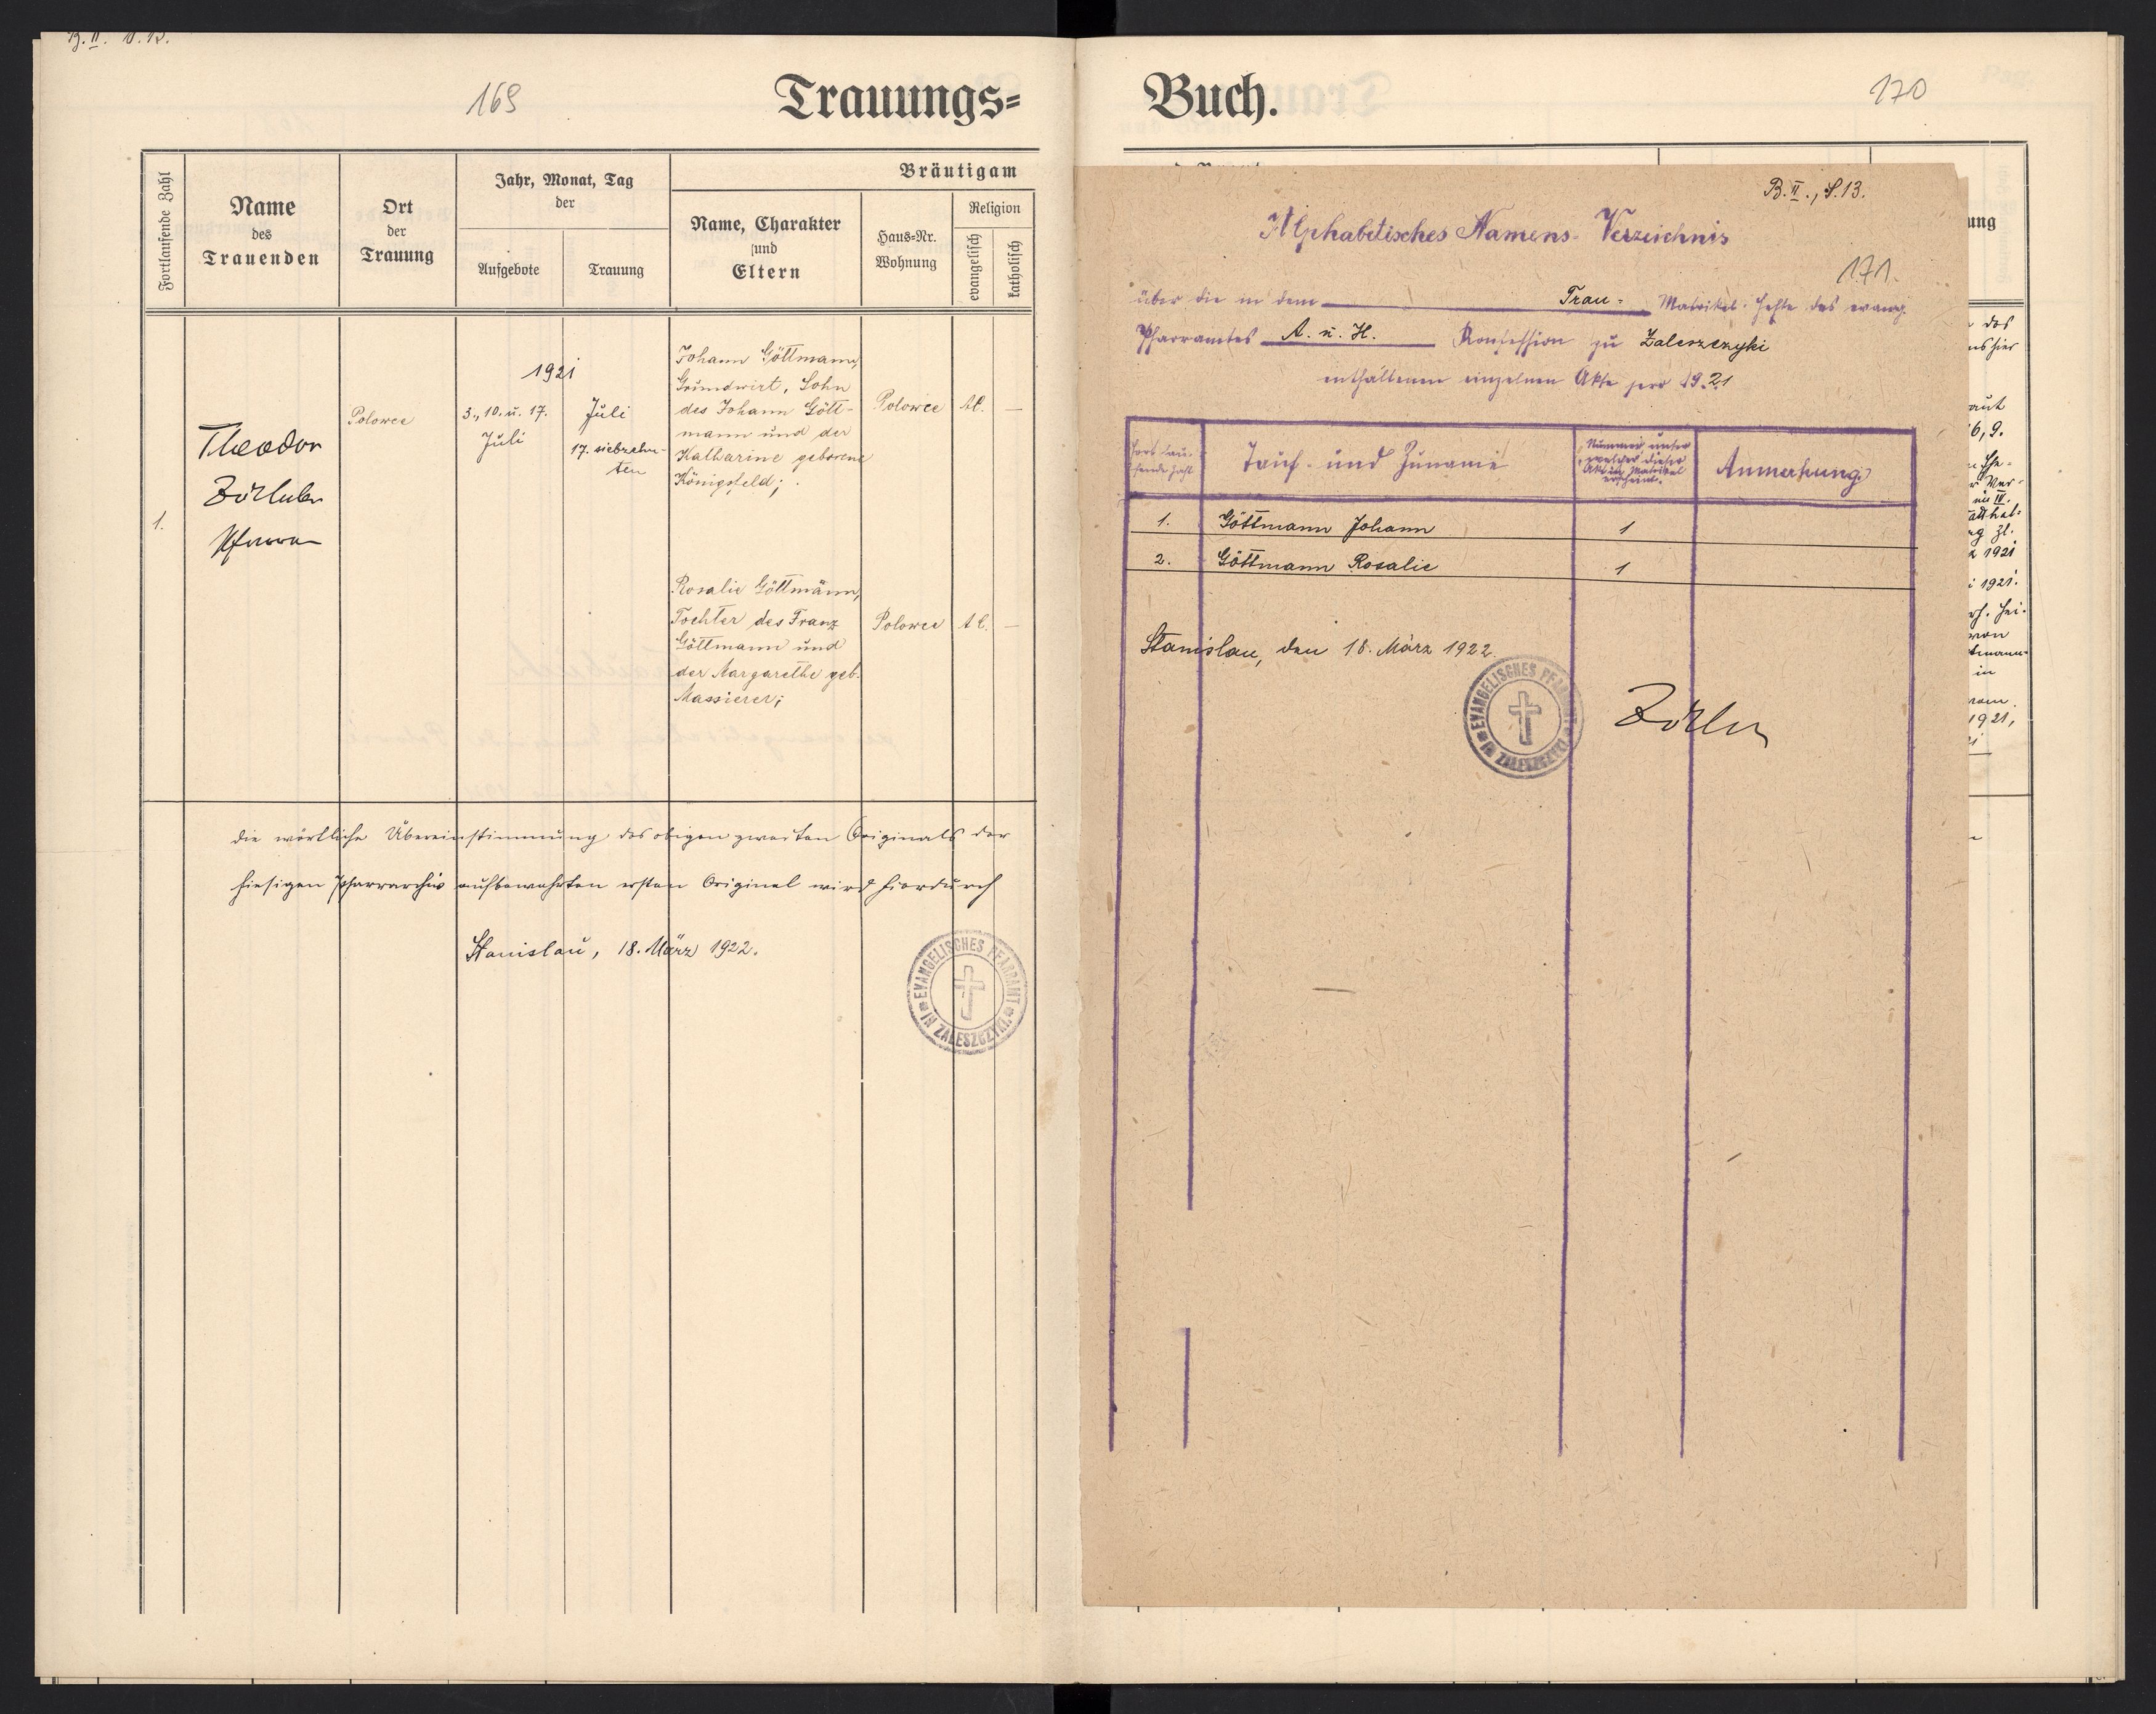 B. II.
169
Trauungs=
Fortlaufende Zahl
Name
des
Trauenden
Ort
der
Trauung
Jahr, Monat, Tag
der
Aufgebote
Trauung
Bräutigam
Name, Charakter
und
Eltern
Haus=Nr.
Wohnung
Religion
evangelisch
katholisch
1.
Theodor
Zöckler
Pfarrer
Polowce
1921
3., 10. u. 17.
Juli
Juli
17. siebzehn-
ten
Johann Göttmann,
Grundwirt, Sohn
des Johann Gött-
mann und der
Katharine geborene
Königsfeld;
Polowce
A.C.
—
Rosalie Göttmann,
Tochter des Franz
Göttmann und
der Margarethe geb.
Massierer;
Polowce
A.C.
—
die wörtliche Übereinstimmung des obigen zweiten Originals der
hiesigen Pfarrarchiv aufbewahrten ersten Original wird hierdurch
Stanislau, 18. März 1922.
EVANGELISCHES PFARRAMT
IN ZALESZCZYKI
Buch.
170
B. II., S. 13.
Alphabetisches Namens-Verzeichnis
171.
über die in dem Trau- Matrikel-Hefte des evang.
Pfarramtes A. u. H. Konfession zu Zaleszczyki
enthaltenen einzelnen Akte pro 1921
Fortlau-
fende Zahl
Tauf- und Zuname
Nummer unter
welcher dieser
Akt in Matrikel
erscheint.
Anmerkung
1. Göttmann Johann 1
2. Göttmann Rosalie 1
Stanislau, den 18. März 1922.
EVANGELISCHES PFARRAMT
IN ZALESZCZYKI
Zöckler
ung
das
hier
6, 9.
Ehe-
Ver-
im IV.
zl.
1921
1921.
von
in
1921,